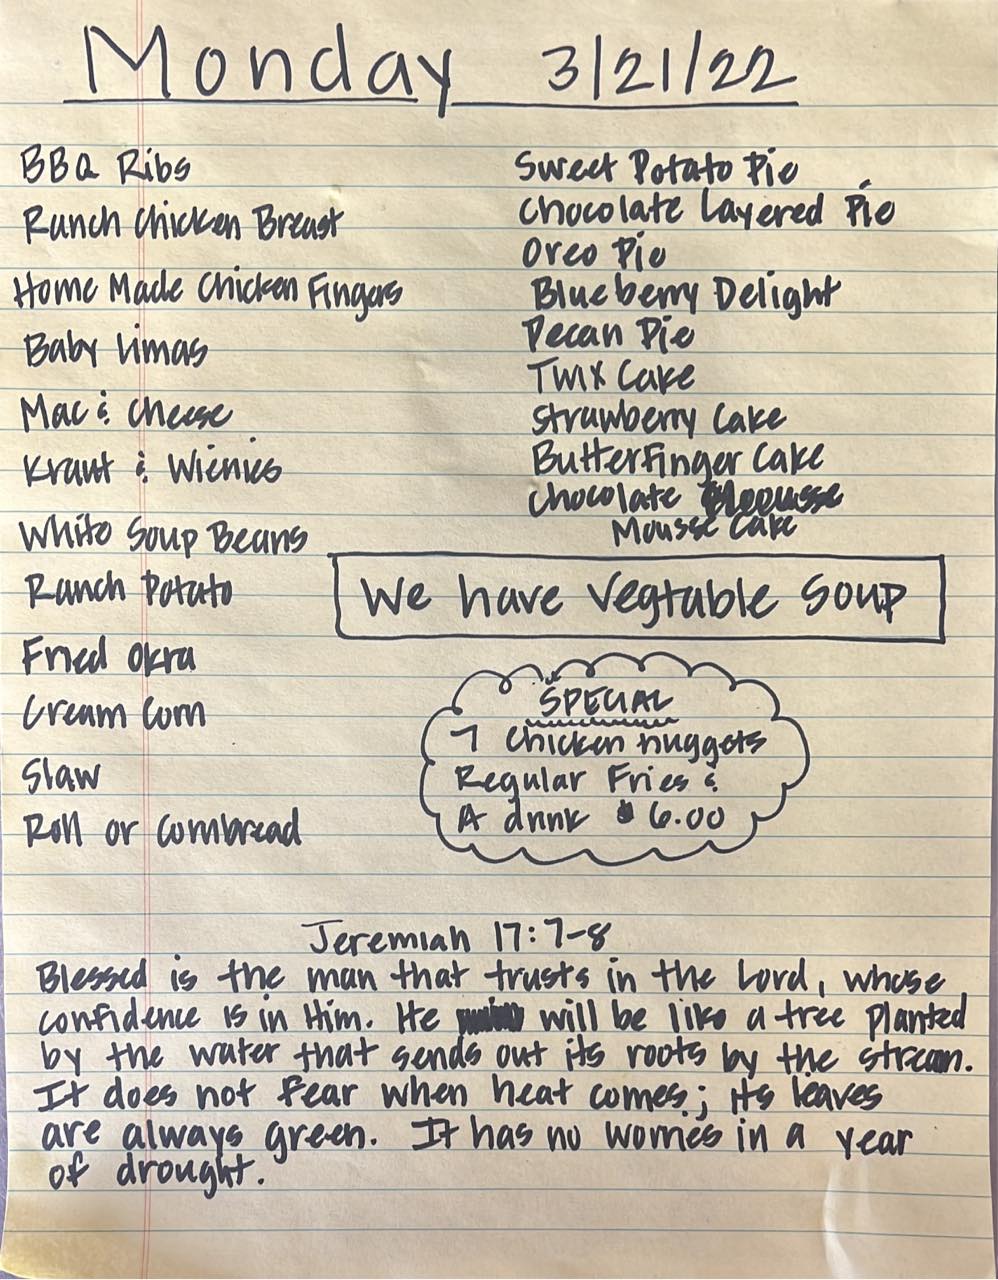 Monday 3/21/22
BBQ Ribs
Ranch Chicken Breast
Home Made Chicken Fingers
Baby Limas
Mac & Cheese
Kraut & Wienies
White Soup Beans
Ranch Potato
Fried Okra
Cream Corn
Slaw
Roll or Cornbread
Sweet Potato Pie
Chocolate Layered Pie
Oreo Pie
Blueberry Delight
Pecan Pie
Twix Cake
Strawberry Cake
Butterfinger Cake
Chocolate
Mousse Cake
We have Vegtable Soup
SPECIAL
7 Chicken nuggets
Regular Fries &
A drink $6.00
Jeremiah 17:7-8
Blessed is the man that trusts in the Lord, whose
confidence is in Him. He will be like a tree planted
by the water that sends out its roots by the stream.
It does not fear when heat comes; its leaves
are always green. It has no worries in a year
of drought.